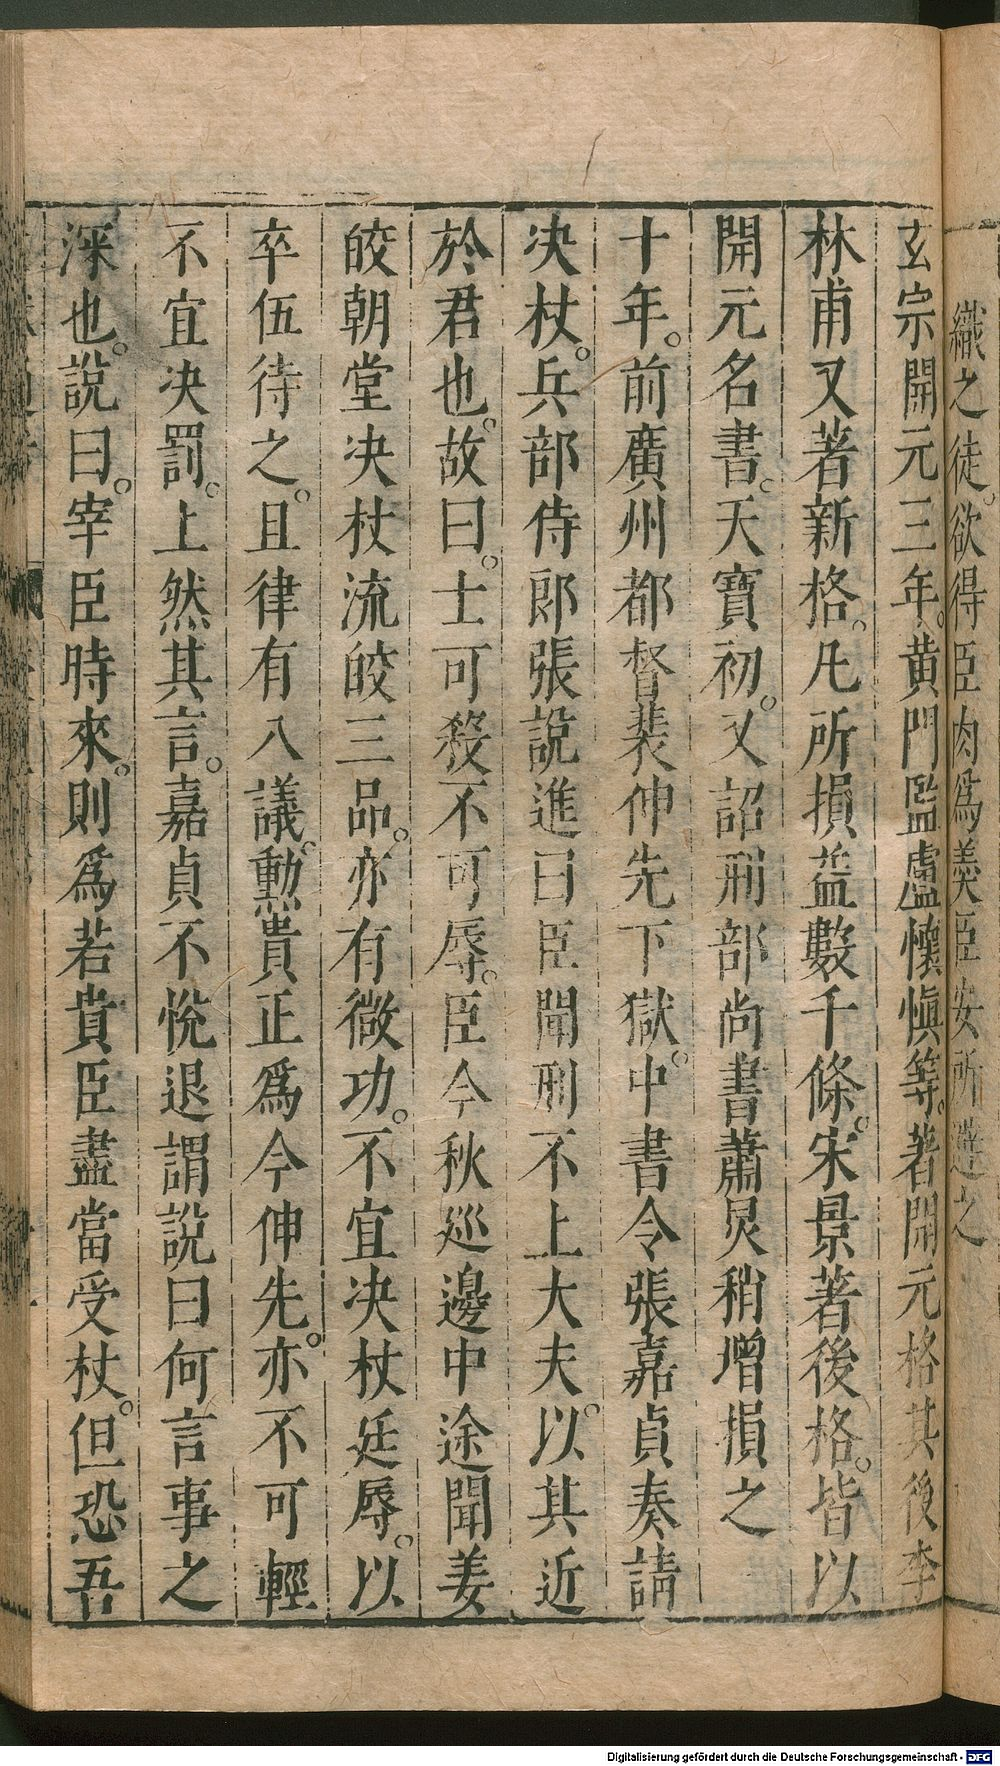 織之徒。欲得臣肉爲羹臣安所避之
玄宗開元三年。黃門監盧懷愼等。著開元格其後李
林甫又著新格。凡所損益數千條。宋景著後格。皆以
開元名書。天寶初。又詔刑部尚書蕭炅稍增損之
十年。前廣州都督裴伷先下獄。中書令張嘉貞奏請
决杖。兵部侍郎張說進曰臣聞刑不上大夫。以其近
於君也。故曰。士可殺不可辱。臣今秋廵邊中途聞姜
皎朝堂决杖流皎三品。亦有微功。不宜决杖廷辱。以
卒伍待之。且律有八議。勳貴正爲今伷先。亦不可輕
不宜决罰。上然其言。嘉貞不悅退謂說曰何言事之
深也。說曰。宰臣時來。則爲若貴臣盡當受杖。但恐吾
Digitalisierung gefördert durch die Deutsche Forschungsgemeinschaft - DFG